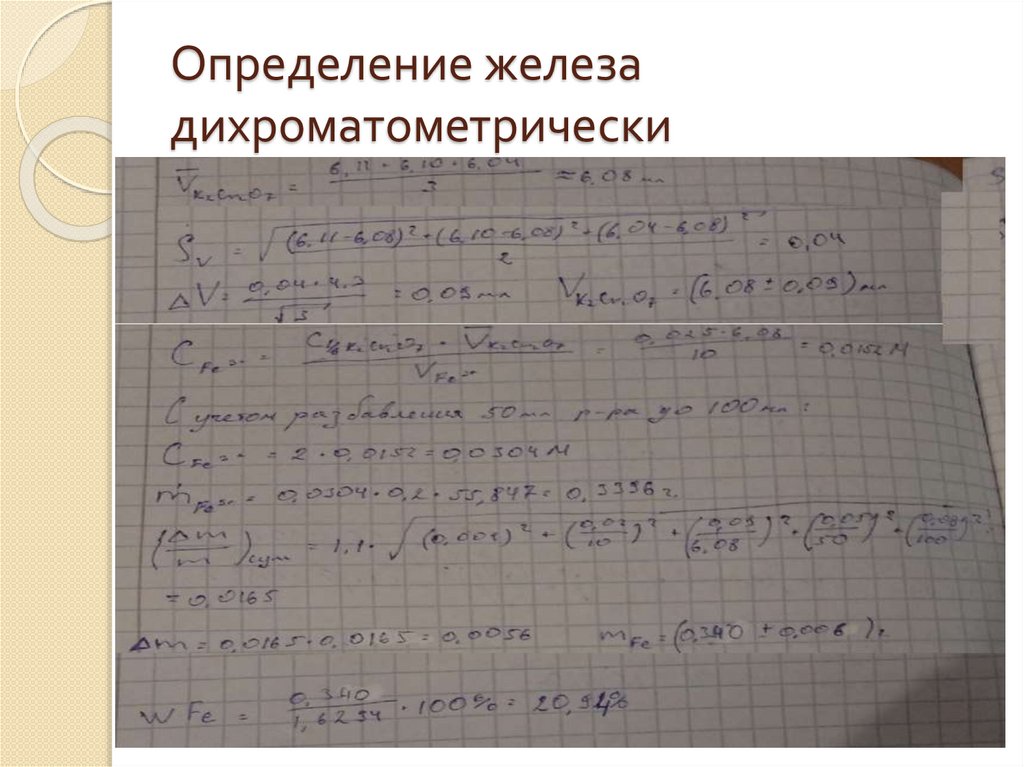 Определение железа
дихроматометрически
V̅K₂Cr₂O₇ = (6,11 + 6,10 + 6,04)/3 ≈ 6,08 мл
Sv = √(((6,11-6,08)² + (6,10-6,08)² + (6,04-6,08)²)/2) = 0,04
ΔV = (0,04 · 4,3)/√3 = 0,09 мл VK₂Cr₂O₇ = (6,08 ± 0,09) мл
CFe²⁺ = (C⅙K₂Cr₂O₇ · V̅K₂Cr₂O₇)/VFe²⁺ = (0,025 · 6,08)/10 = 0,0152 М
С учетом разбавления 50 мл р-ра до 100 мл:
CFe²⁺ = 2 · 0,0152 = 0,0304 М
mFe²⁺ = 0,0304 · 0,2 · 55,847 = 0,3396 г.
(Δm/m)сум = 1,1 · √((0,002)² + (0,02/10)² + (0,09/6,08)² + (0,05/50)² + (0,08/100)²)
= 0,0165
Δm = 0,0165 · 0,0165 = 0,0056 mFe = (0,340 ± 0,006) г
W Fe = 0,340/1,6234 · 100% = 20,94%